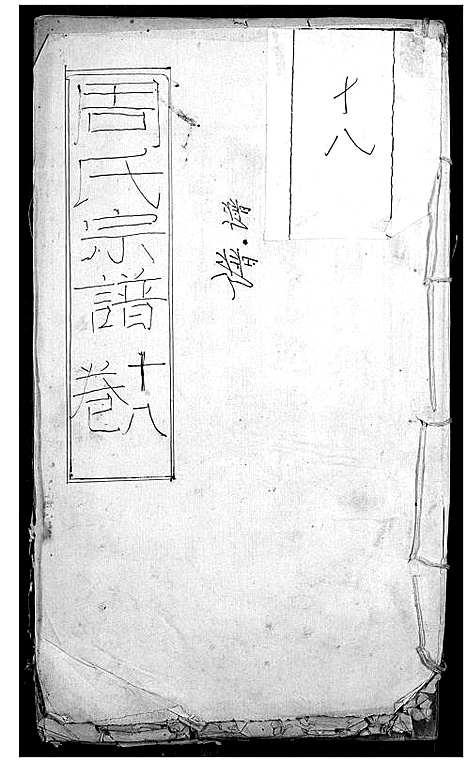 十八
譜·譜
周氏宗譜
卷十八